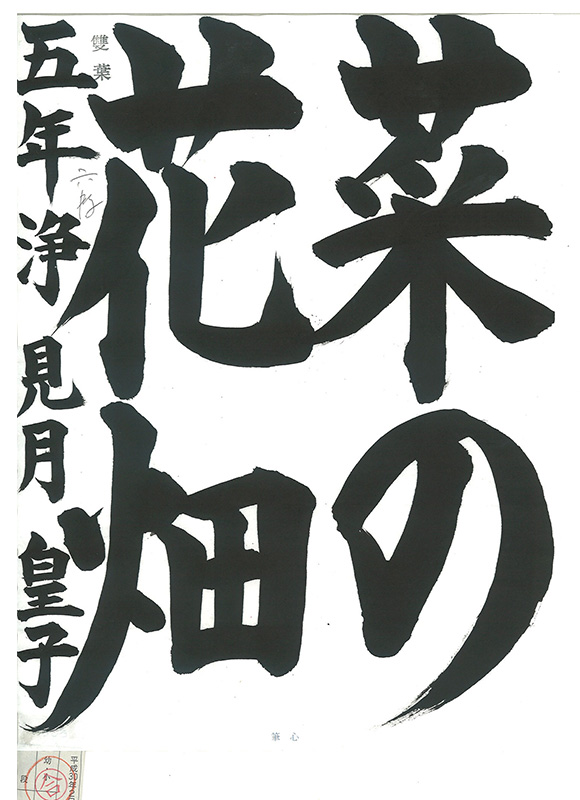 菜の
花畑
五年浄見月皇子
雙葉
六段
心筆
平成30年2
幼小
段